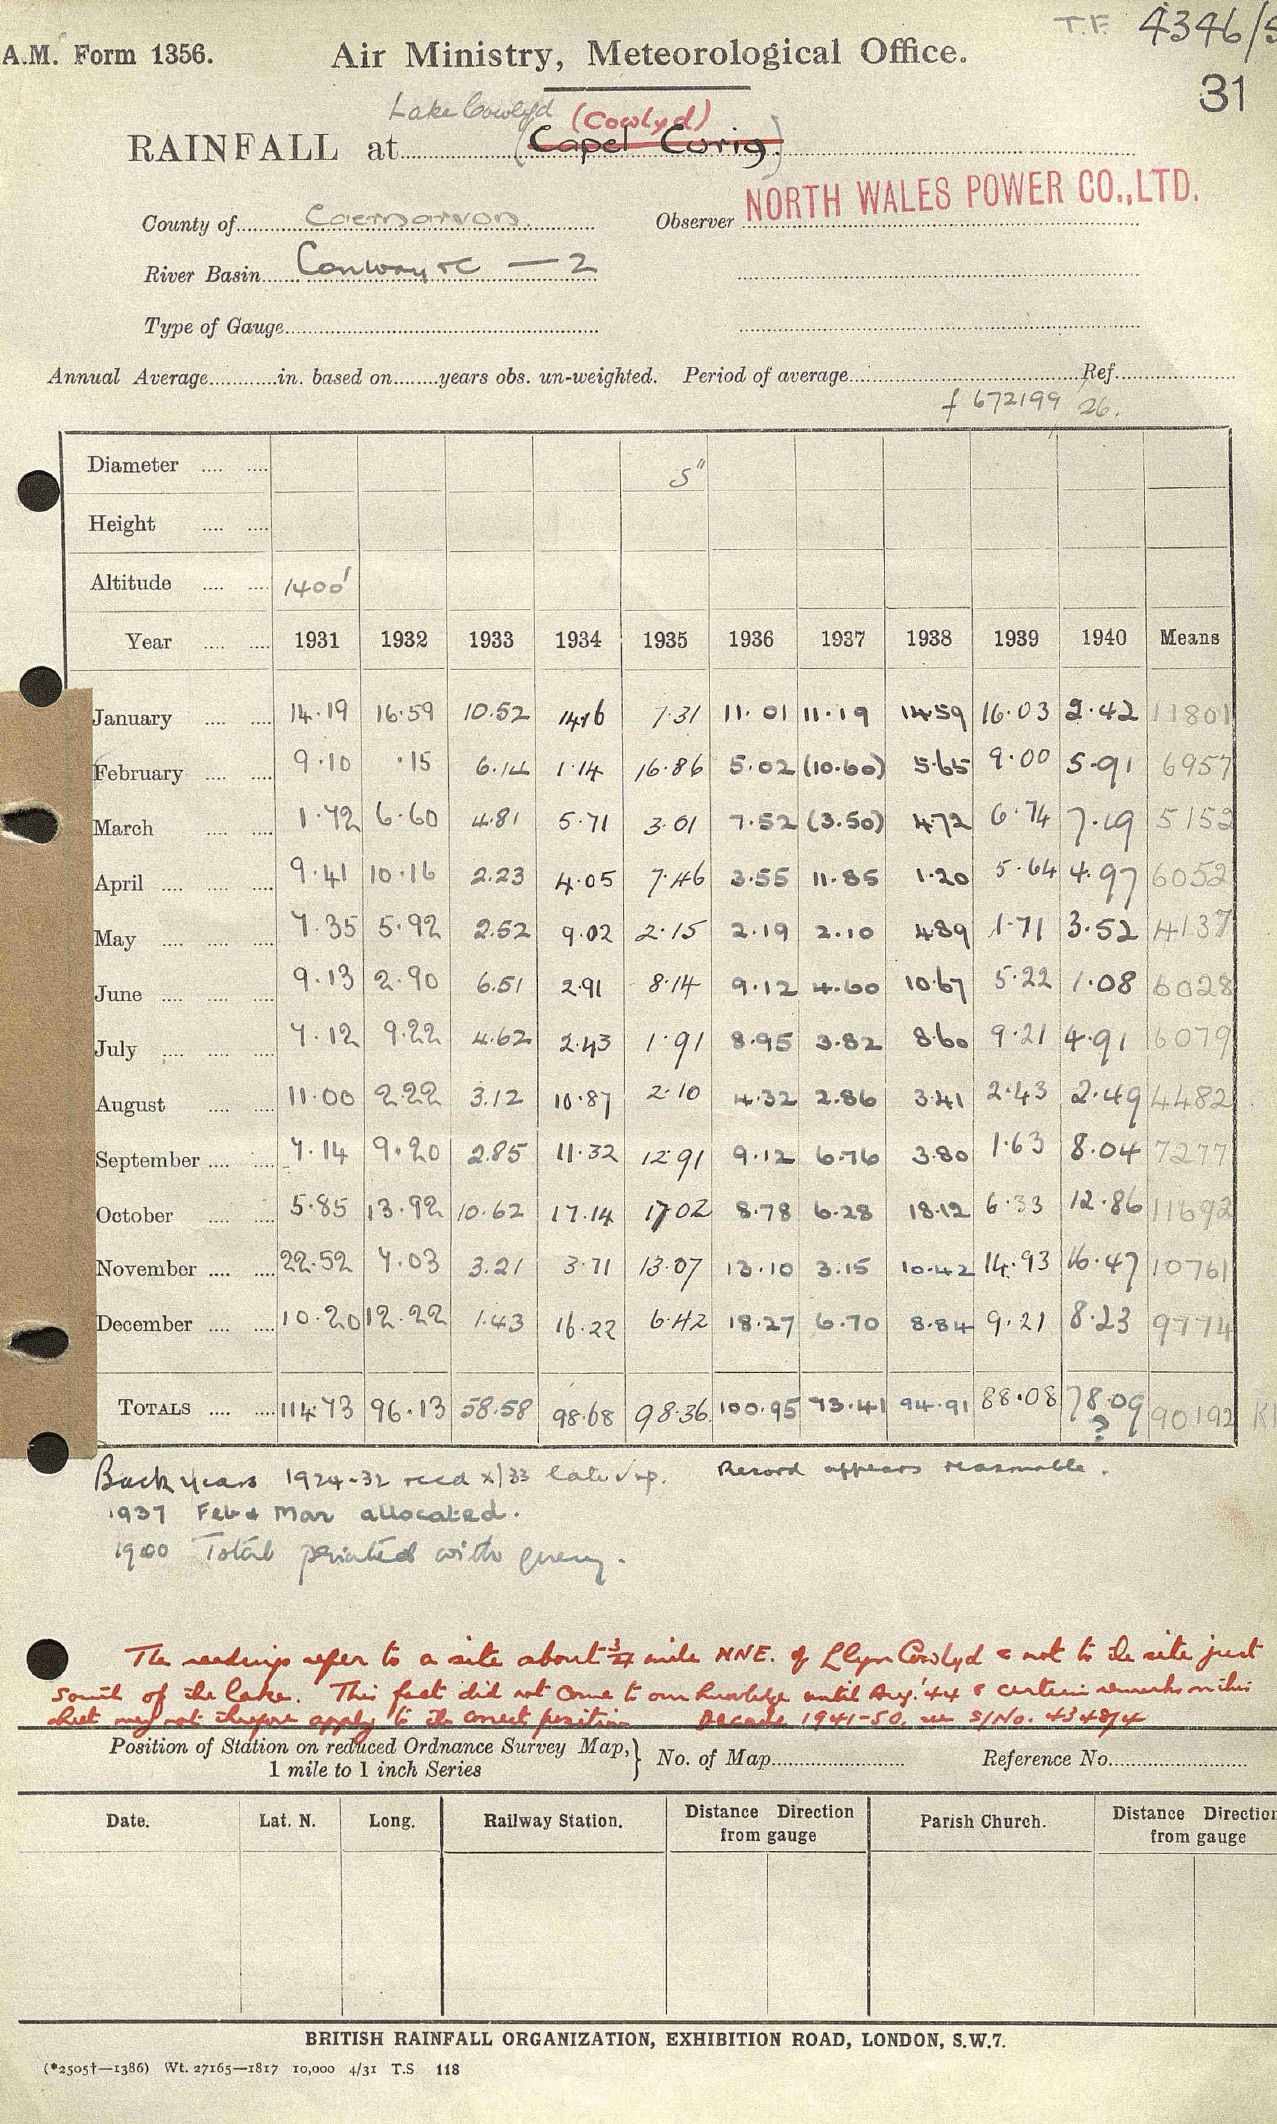 T.F. 4346/5
A.M. Form 1356. Air Ministry, Meteorological Office.
31
Lake Cowlyd (Cowlyd)
RAINFALL at (Capel Curig.)
County of Caernarvon. Observer NORTH WALES POWER CO., LTD.
River Basin Conway &c — 2
Type of Gauge
Annual Average in. based on years obs. un-weighted. Period of average Ref.
672199 26.
Diameter 5"
Height
Altitude 1400'
Year 1931 1932 1933 1934 1935 1936 1937 1938 1939 1940 Means
January 14.19 16.59 10.52 14.16 7.31 11.01 11.19 14.59 16.03 2.42 11801
February 9.10 .15 6.14 1.14 16.86 5.02 (10.60) 5.65 9.00 5.91 6957
March 1.72 6.60 4.81 5.71 3.01 7.52 (3.50) 4.72 6.74 7.19 5152
April 9.41 10.16 2.23 4.05 7.46 3.55 11.85 1.20 5.64 4.97 6052
May 7.35 5.92 2.52 9.02 2.15 2.19 2.10 4.89 1.71 3.52 4137
June 9.13 2.90 6.51 2.91 8.14 9.12 4.60 10.67 5.22 1.08 6028
July 7.12 9.22 4.62 2.43 1.91 8.95 3.82 8.60 9.21 4.91 6079
August 11.00 2.22 3.12 10.87 2.10 4.32 2.86 3.41 2.43 2.49 4482
September 7.14 9.20 2.85 11.32 12.91 9.12 6.76 3.80 1.63 8.04 7277
October 5.85 13.92 10.62 17.14 17.02 8.78 6.28 18.12 6.33 12.86 11692
November 22.52 7.03 3.21 3.71 13.07 13.10 3.15 10.42 14.93 16.47 10761
December 10.20 12.22 1.43 16.22 6.42 18.27 6.70 8.84 9.21 8.23 9774
TOTALS 114.73 96.13 58.58 98.68 98.36 100.95 73.41 94.91 88.08 78.09 90192
?
Back years 1924-32 recd x/33 late Record appears reasonable.
1937 Feb & Mar allocated.
1940 Total printed with query.
The readings refer to a site about 3/4 mile NNE. of Llyn Cowlyd & not to the site just
south of the lake. This fact did not come to our knowledge until Aug. '44 & certain remarks on this
sheet may not therefore apply to the correct position Decade 1941-50, see S/No. 4348/4
Position of Station on reduced Ordnance Survey Map, 1 mile to 1 inch Series } No. of Map Reference No.
Date. Lat. N. Long. Railway Station. Distance Direction from gauge Parish Church. Distance Direction from gauge
BRITISH RAINFALL ORGANIZATION, EXHIBITION ROAD, LONDON, S.W.7.
(*2505†—1386) Wt. 27165—1817 10,000 4/31 T.S. 118